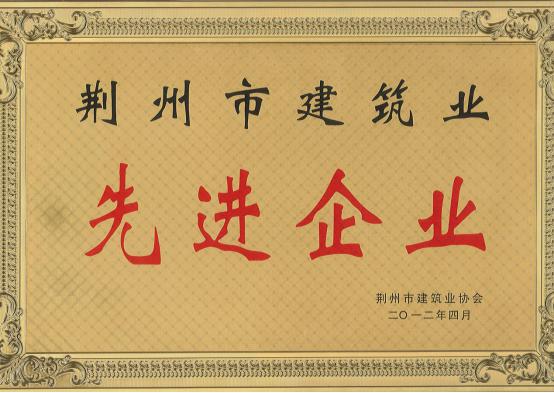 荆州市建筑业
先进企业
荆州市建筑业协会
二〇一二年四月